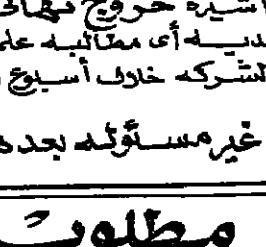 تأشيرة خروج نهائى
لديه أى مطالبه على
الشركه خلال أسبوع
غير مسئوله بعدها
مطلوب